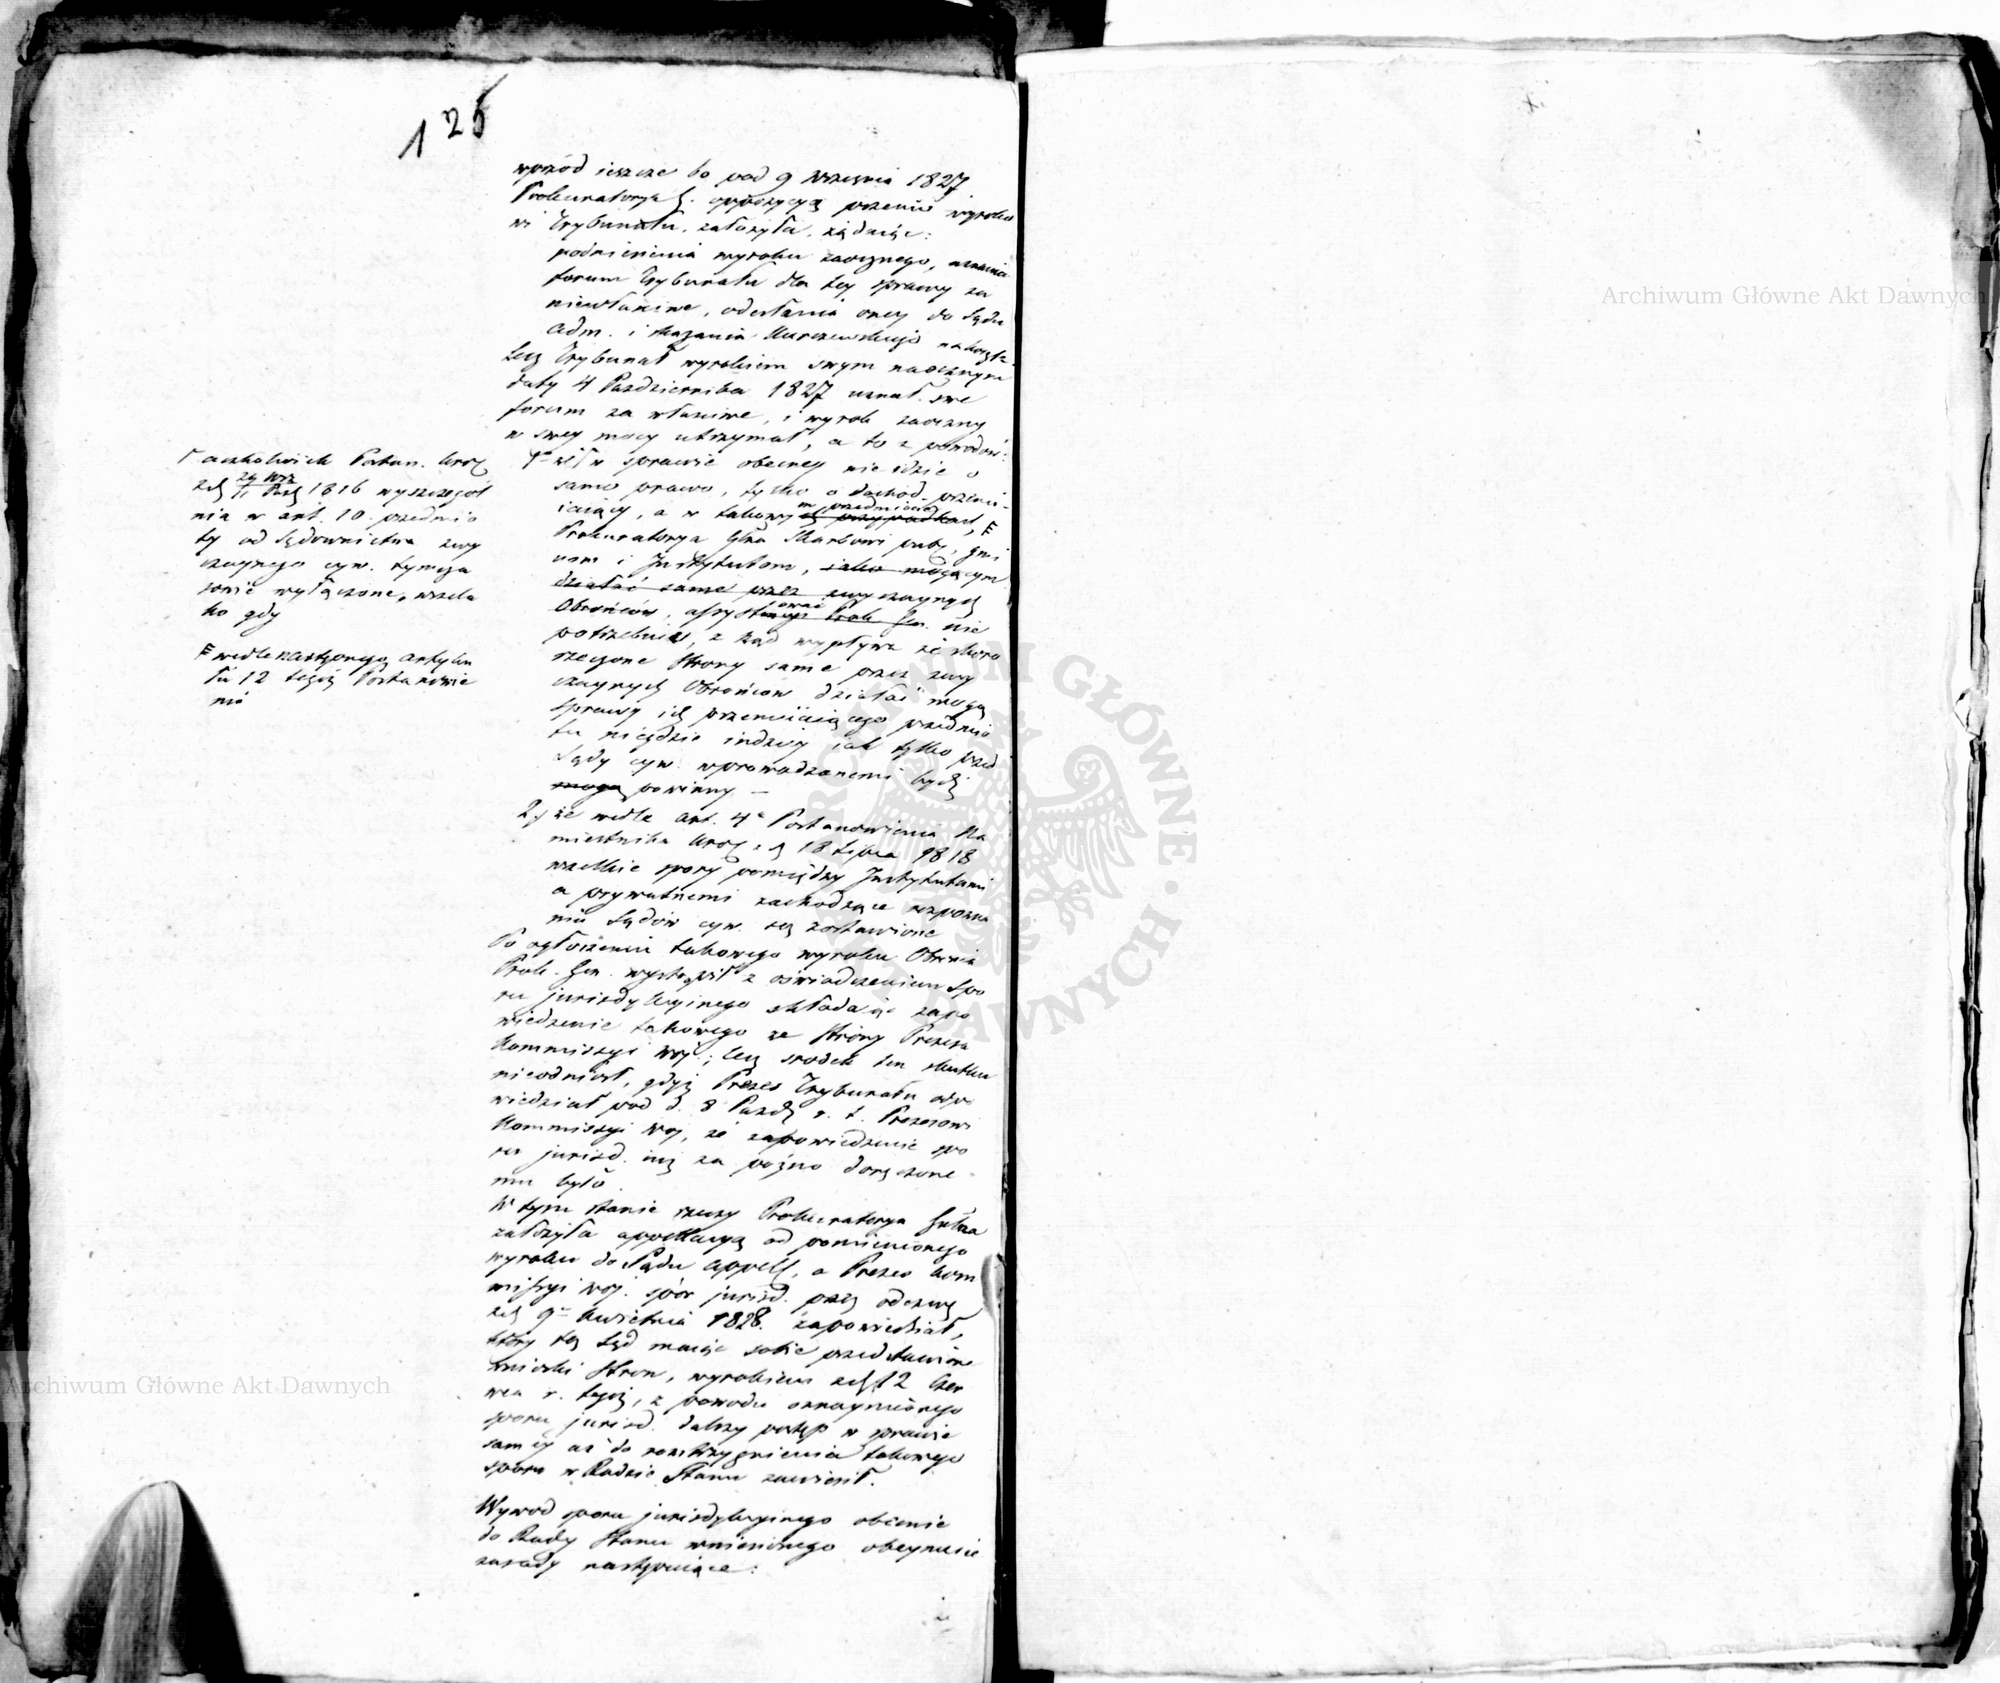 125
wprzód ieszcze bo pod 9 Września 1827
Prokuratorya J. oppozycyą przeciw wyroko
wi Trybunału założyła, żądaiąc:
podniesienia wyroku zaocznego, uznania
forum Trybunału dla tey sprawy za
niewłaściwe, odesłania oney do Sądu
Adm. i skazania Kurzewskiego na koszta
lecz Trybunał wyrokiem swym naocznym
daty 4 Października 1827 uznał swe
forum za właściwe, i wyrok zaoczny
w swey mocy utrzymał, a to z powodów:
1° że w sprawie obecney nie idzie o
samo prawo, tylko o dochod przemi-
iaiący, a w takowym przedmiocie
Prokuratorya Glna Skarbowi pub, gmi
nom i Instytutom, iako mogącym
działać same przez zwyczaynych
Obrońców, assystować Prok Gen. nie
potrzebuie, z kąd wypływa że skoro
rzeczone strony same przez zwy
czaynych Obrońców działać mogą
sprawy ich przemiiaiącego przedmio
tu nigdzie indziey iak tylko przed
Sądy cyw. wprowadzonemi bydź
mogą powinny —
2. że wedle art. 4° Postanowienia Na
miestnika Król z d 18 Lipca 1818
wszelkie spory pomiędzy Instytutami
a prywatnemi zachodzące rozpozna
niu Sądów cyw. są zostawione
Po ogłoszeniu takowego wyroku Obrońca
Prok. Gen. wystąpił z oświadczeniem spo
ru jurisdykcyinego składaiąc zapo
wiedzenie takowego ze strony Prezesa
Kommissyi Woj.; lecz srodek ten skutku
nieodniósł, gdyż Prezes Trybunału odpo
wiedział pod d. 8 Paźdz r. t. Prezesowi
Kommissyi Woj, że zapowiedzenie spo
ru jurisd. iuż za pożno doręczone
mu było.
W tym stanie rzeczy Prokuratorya Gnlna
założyła appellacyą od pomienionego
wyroku do Sądu Appell, a Prezes Kom
missyi Woj. spór jurisd. przez odezwę
z d 9° Kwietnia 1828. zapowiedział,
który też Sąd maiąc sobie przedstawione
wnioski stron, wyrokiem z d 12 Czer
wca r. tegoż, z powodu oznaymionego
sporu jurisd. dalszy postęp w sprawie
samey aż do rozstrzygnienia takowego
sporu w Radzie Stanu zawiesił.
Wywod sporu jurisdykcyinego obecnie
do Rady Stanu wniesionego obeymuie
zasady następuiące:
Γ aczkolwiek Postan. Król
z d 29 Wrz / 11 Paźd 1816 wyszczegól
nia w art. 10. przedmio
ty od Sądownictwa zwy
czaynego cyw. tymcza
sowie wyłączone, wszela
ko gdy
F wedle następnego artyku
łu 12 tegoż Postanowie
nia
Archiwum Główne Akt Dawnych
Archiwum Główne Akt Dawnych
ARCHIWUM GŁÓWNE AKT DAWNYCH